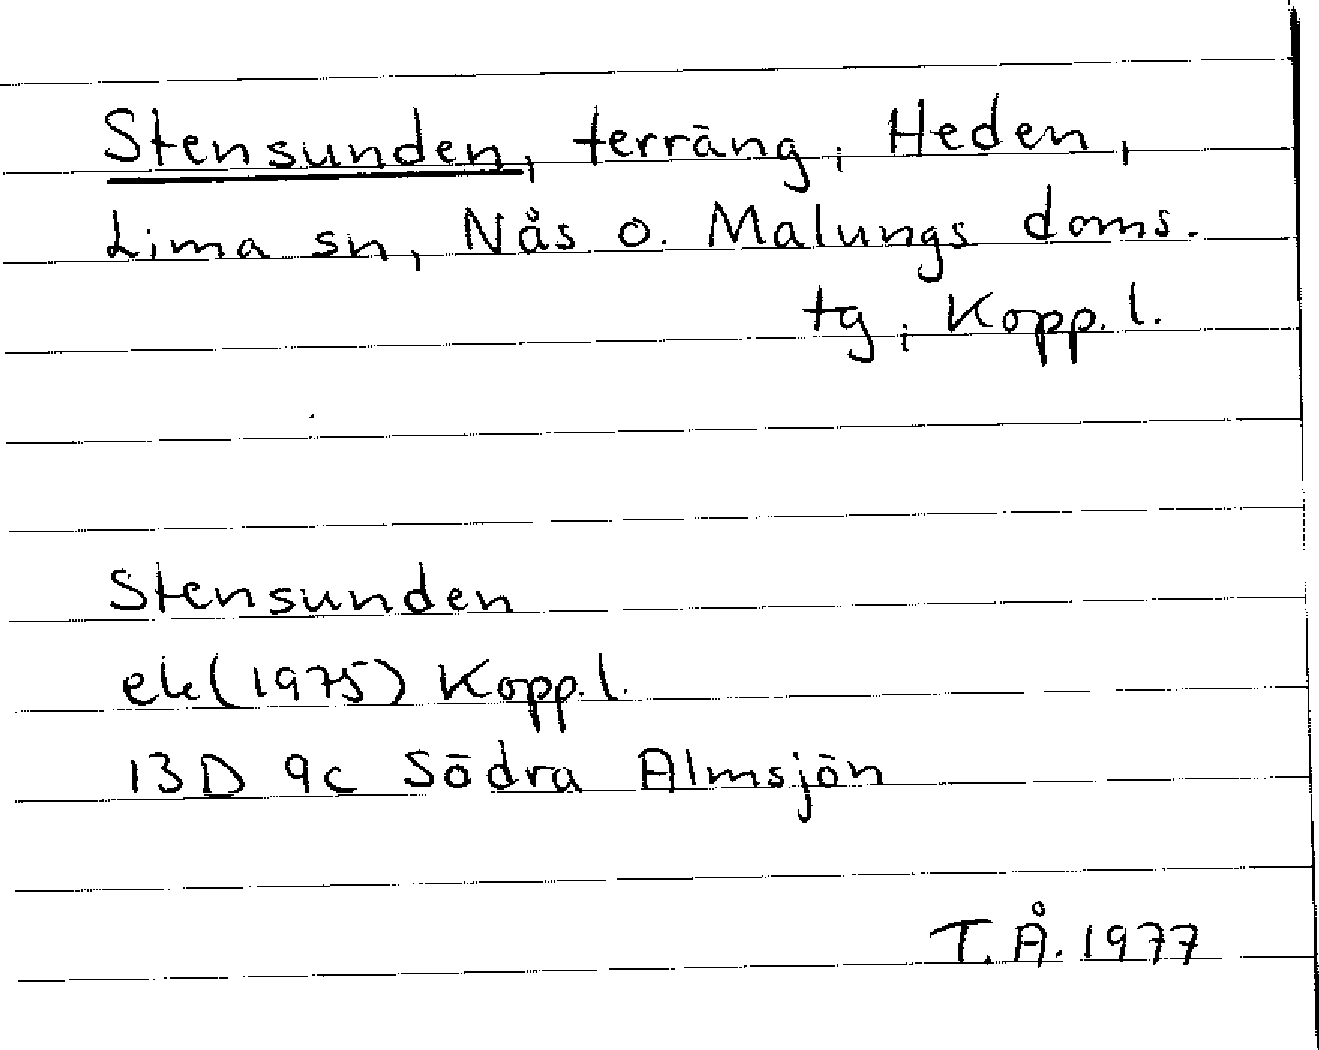 Stensunden, terräng, Heden,
Lima sn, Nås o. Malungs doms.
tg, Kopp. l.
Stensunden
ek (1975) Kopp. l.
13D 9c Södra Almsjön
T. Å. 1977